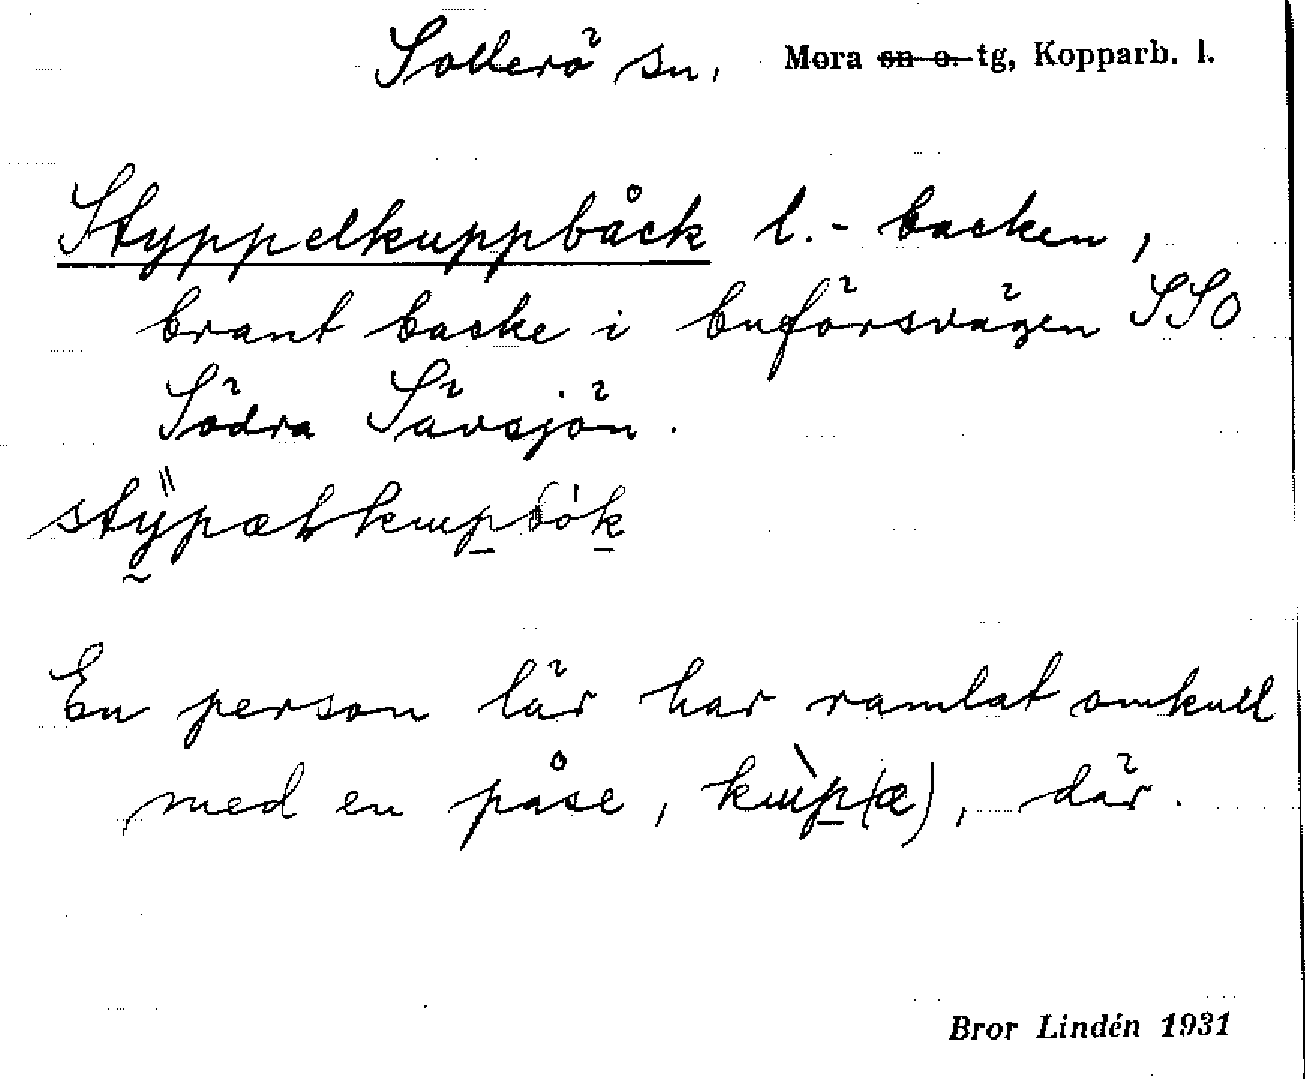 Sollerö sn, Mora sn o. tg, Kopparb. l.
Styppelkuppbåck l. - backen,
brant backe i buförsvägen SSO
Södra Sävsjön.
En person lär har ramlat omkull
med en påse, kɯ̀p̲(æ), där.
Bror Lindén 1931